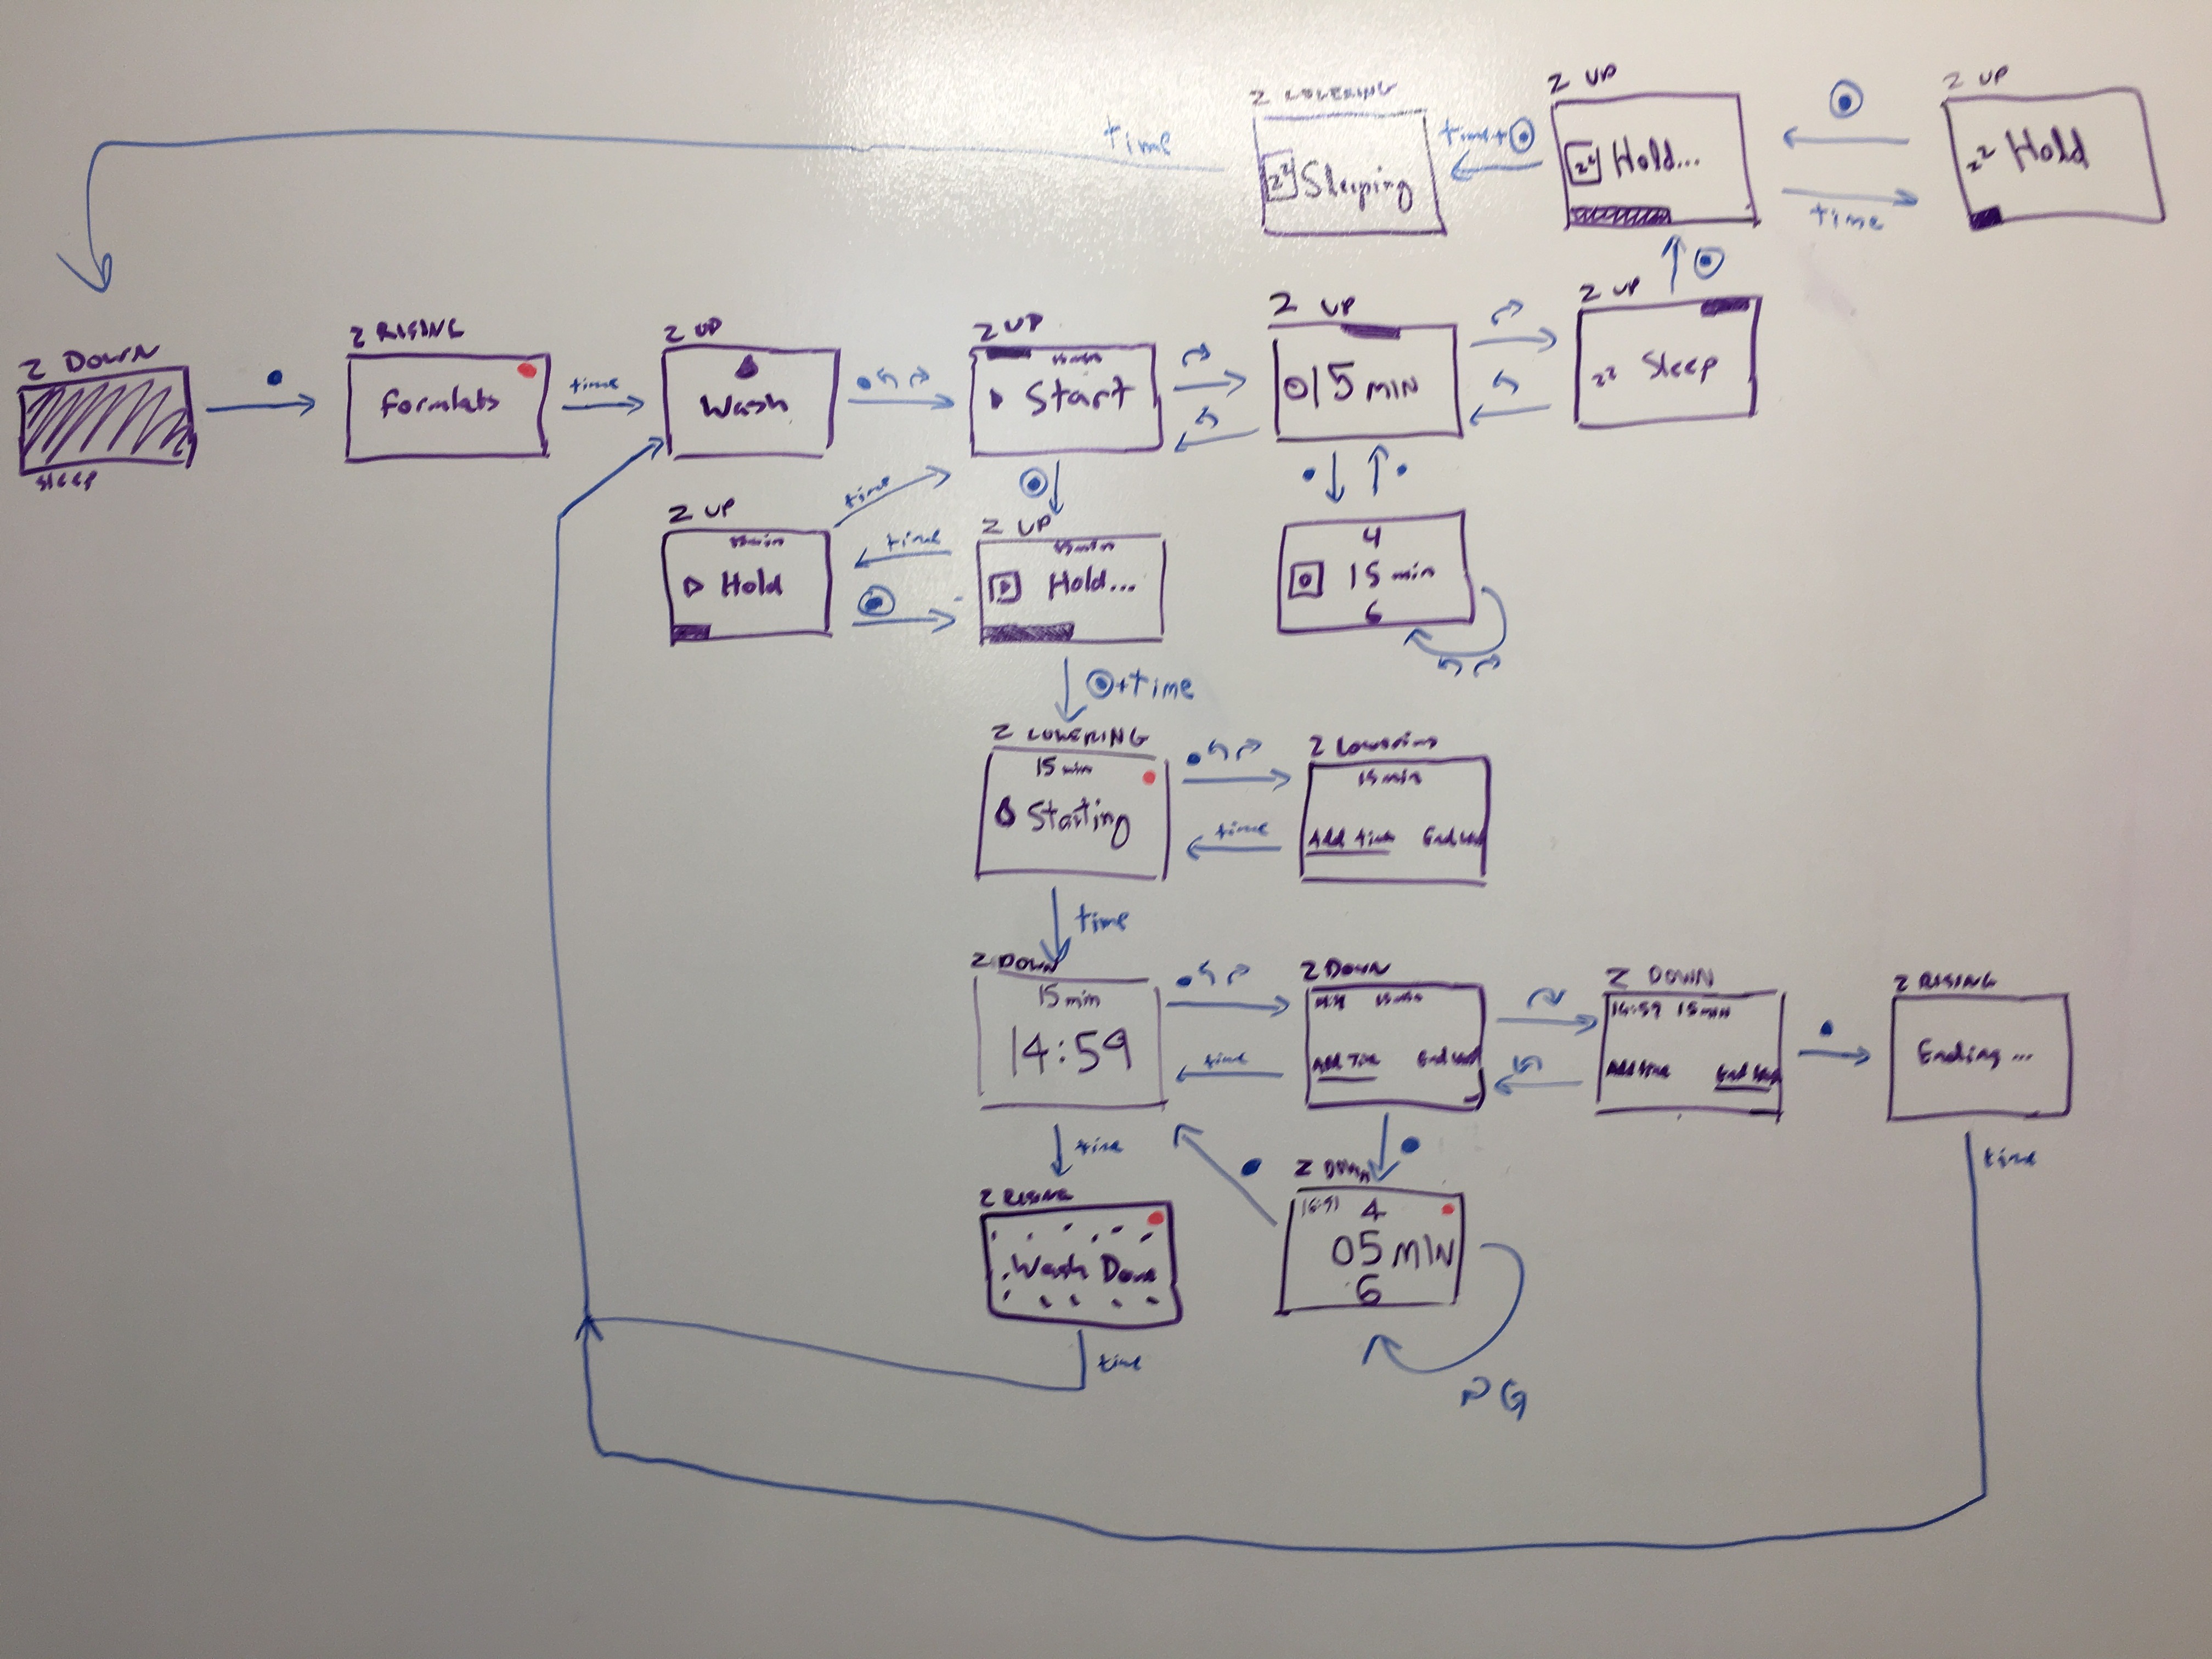 Z LOWERING
time
Sleeping
time+
Z UP
Hold...
time
Z UP
zz Hold
Z DOWN
sleep
Z RISING
formlabs
time
Z UP
Wash
Z UP
15 min
Start
Z UP
015 MIN
Z UP
zz Sleep
Z UP
15 min
Hold
time
time
Z UP
15 min
Hold...
4
15 min
6
+time
Z LOWERING
15 min
Starting
time
Z Lowering
15 min
Add time
time
Z DOWN
15 min
14:59
time
Z DOWN
15 min
Add Time
Z DOWN
14:59 15 min
Add time
Z RISING
Ending...
time
time
Z RISING
Wash Done
time
Z DOWN
4
05 MIN
6